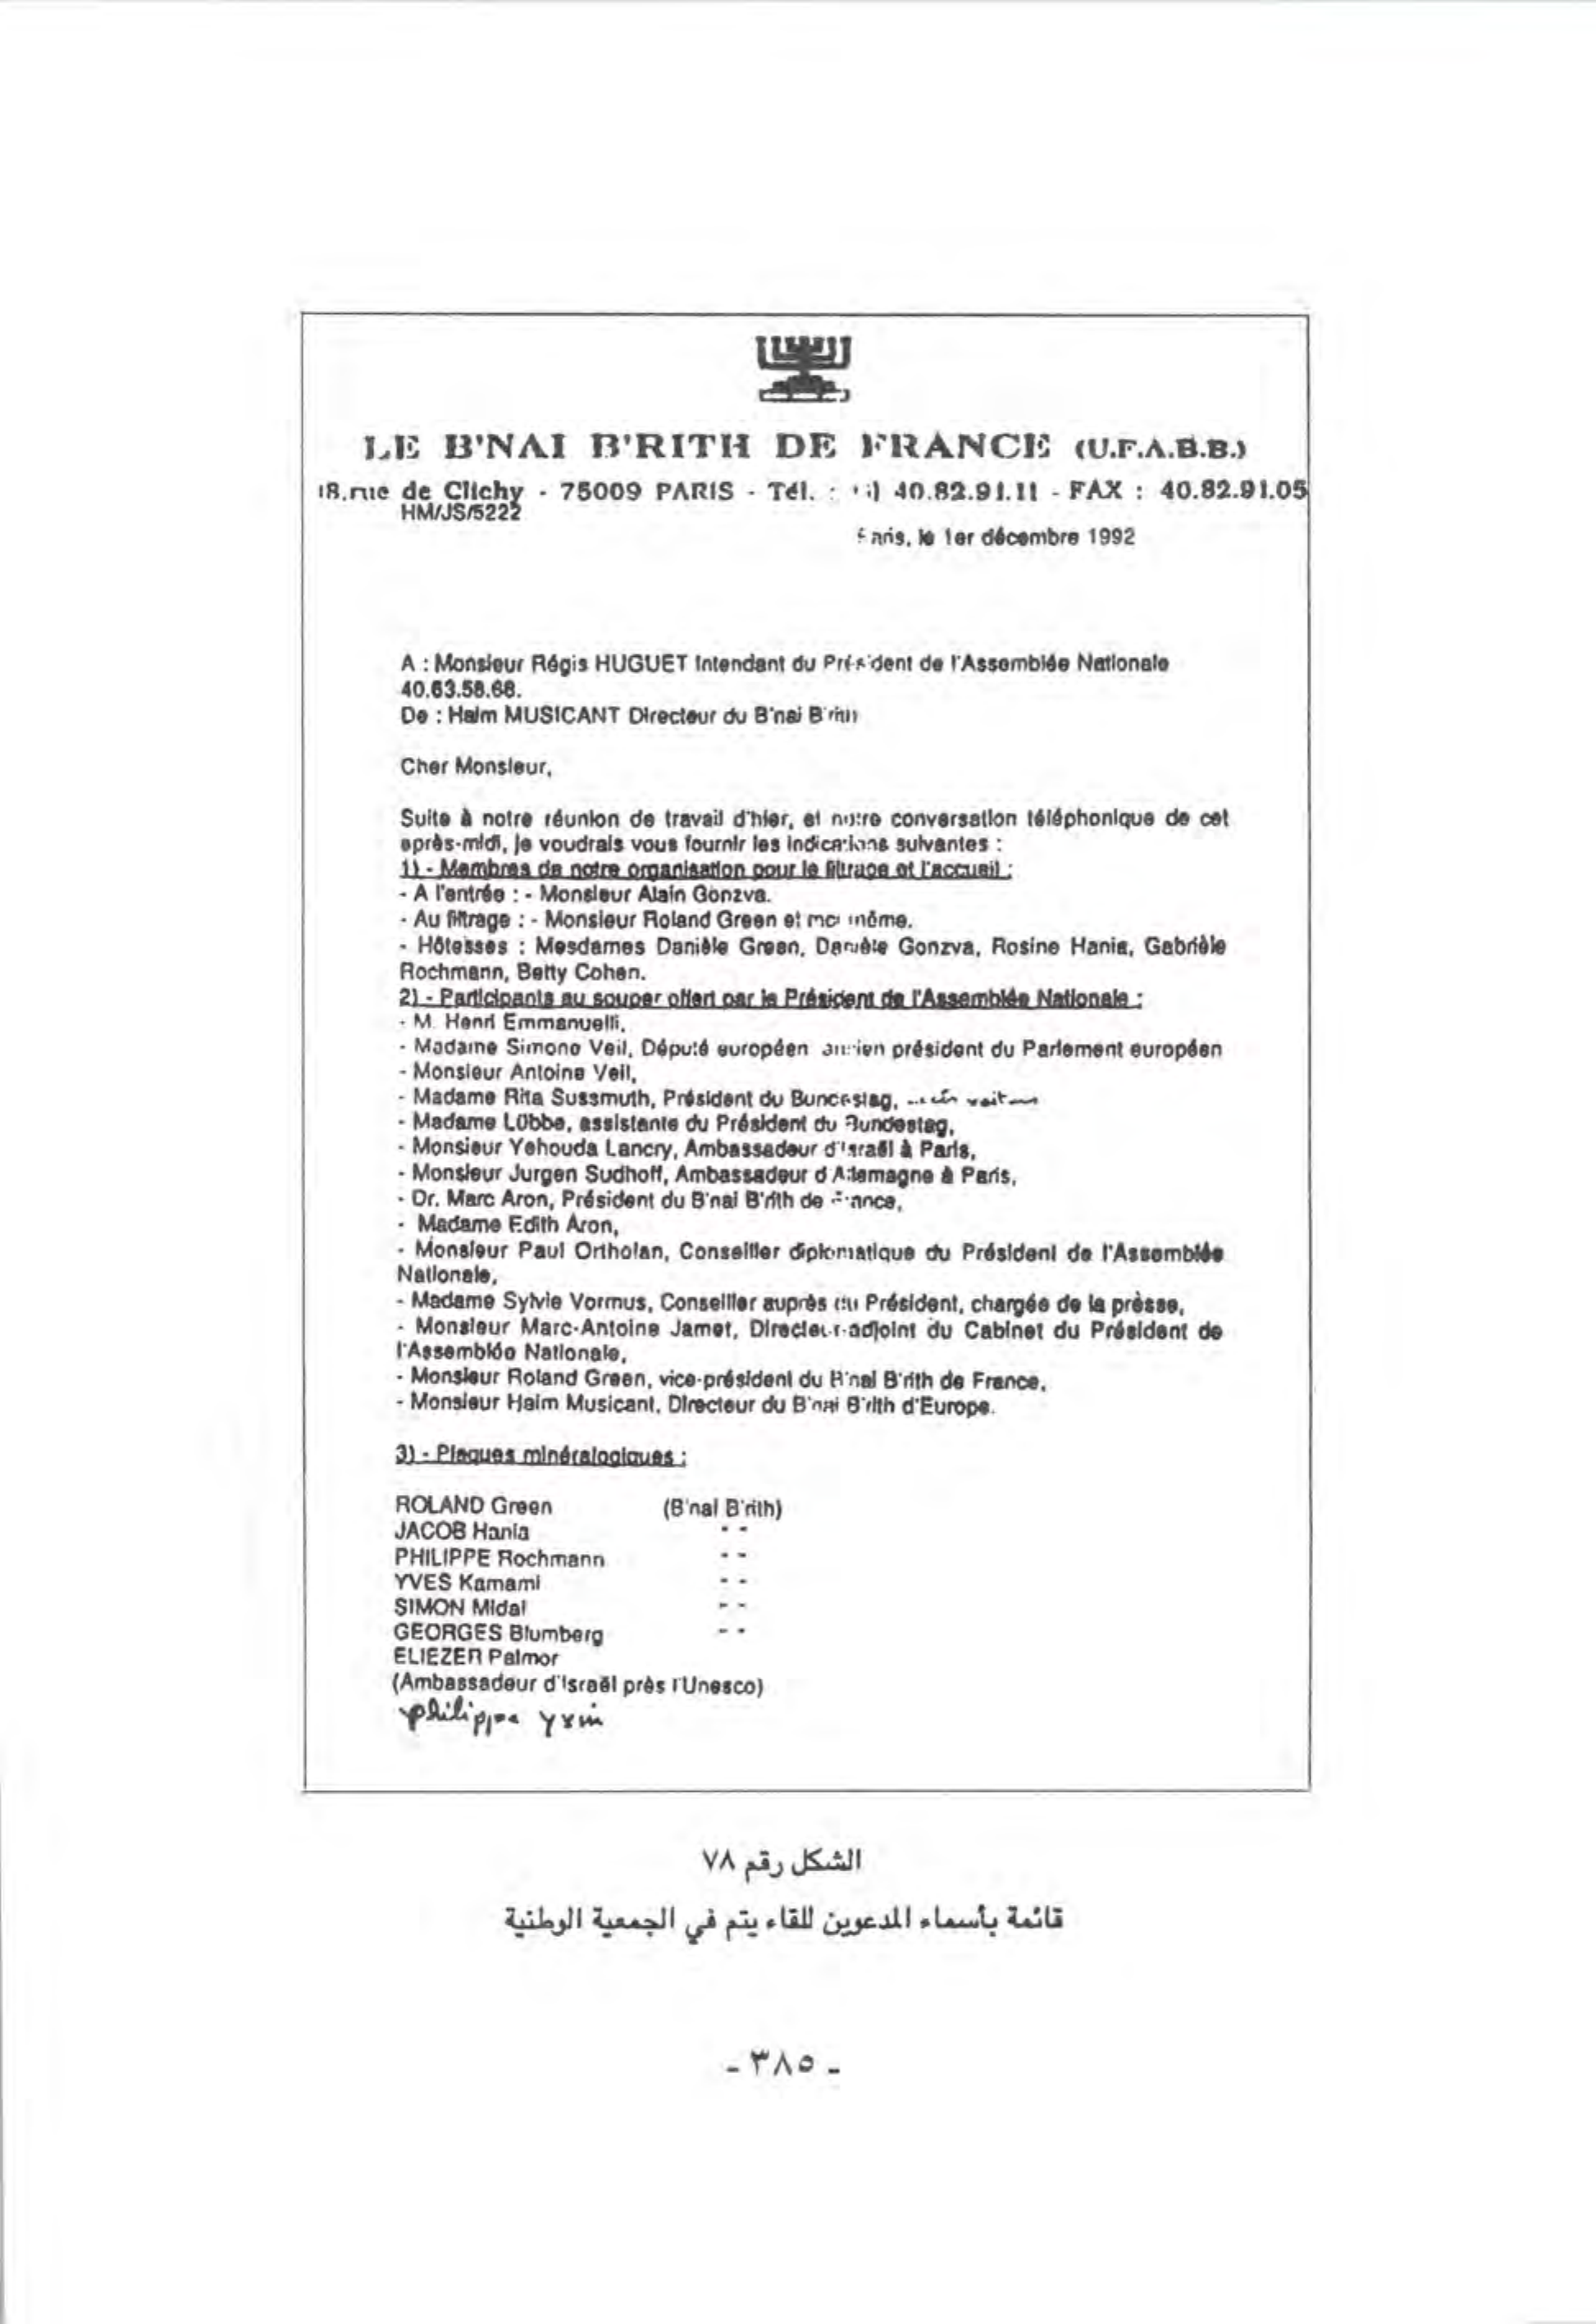 LE B'NAI B'RITH DE FRANCE (U.F.A.B.B.)
18, rue de Clichy - 75009 PARIS - Tél. : 40.82.91.11 - FAX : 40.82.91.05
HM/JS/5222
Paris, le 1er décembre 1992
A : Monsieur Régis HUGUET Intendant du Président de l'Assemblée Nationale
40.63.58.68.
De : Haim MUSICANT Directeur du B'nai B'rith
Cher Monsieur,
Suite à notre réunion de travail d'hier, et notre conversation téléphonique de cet
après-midi, je voudrais vous fournir les indications suivantes :
1) - Membres de notre organisation pour le filtrage et l'accueil :
- A l'entrée : - Monsieur Alain Gonzva.
- Au filtrage : - Monsieur Roland Green et moi même.
- Hôtesses : Mesdames Danièle Green, Danièle Gonzva, Rosine Hania, Gabrièle
Rochmann, Betty Cohen.
2) - Participants au souper offert par le Président de l'Assemblée Nationale :
- M. Henri Emmanuelli,
- Madame Simone Veil, Député européen ancien président du Parlement européen
- Monsieur Antoine Veil,
- Madame Rita Sussmuth, Président du Bundestag,
- Madame Lübbe, assistante du Président du Bundestag,
- Monsieur Yehouda Lancry, Ambassadeur d'Israël à Paris,
- Monsieur Jurgen Sudhoff, Ambassadeur d'Allemagne à Paris,
- Dr. Marc Aron, Président du B'nai B'rith de France,
- Madame Edith Aron,
- Monsieur Paul Ortholan, Conseiller diplomatique du Président de l'Assemblée
Nationale,
- Madame Sylvie Vormus, Conseiller auprès du Président, chargée de la prèsse,
- Monsieur Marc-Antoine Jamet, Directeur-adjoint du Cabinet du Président de
l'Assemblée Nationale,
- Monsieur Roland Green, vice-président du B'nai B'rith de France,
- Monsieur Haim Musicant, Directeur du B'nai B'rith d'Europe.
3) - Plaques minéralogiques :
ROLAND Green (B'nai B'rith)
JACOB Hania - -
PHILIPPE Rochmann - -
YVES Kamami - -
SIMON Midal - -
GEORGES Blumberg - -
ELIEZER Palmor
(Ambassadeur d'Israël près l'Unesco)
Philippe
الشكل رقم ٧٨
قائمة بأسماء المدعوين للقاء يتم في الجمعية الوطنية
- ٣٨٥ -